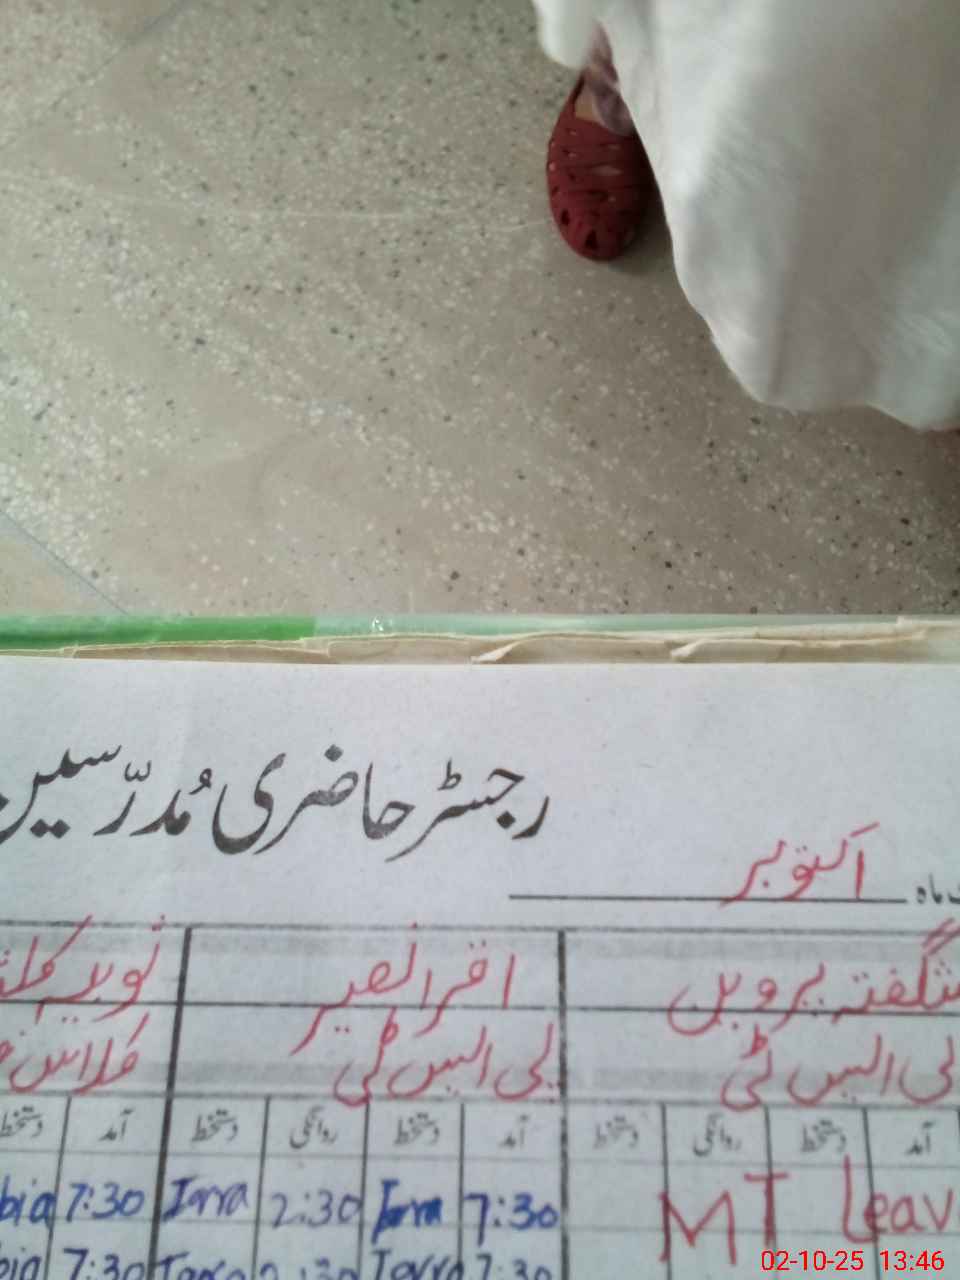 رجسٹر حاضری مُدرّسین
ماہ اکتوبر
شگفتہ پروین اقرا نصیر ثوبیہ
پی ایس ٹی پی ایس ٹی کلاس
آمد دستخط روانگی دستخط آمد دستخط روانگی دستخط آمد دستخط
MT Leav 7:30 Iqra 2:30 Iqra 7:30 bia
7:30 Iqra 2:30 Iqra 7:30 bia
02-10-25 13:46